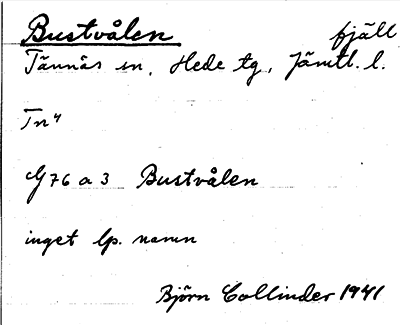 Bustvålen fjäll
Tännäs sn, Hede tg, Jämtl. l.
Tn⁴
G 76 a 3 Bustvålen
inget lp. namn
Björn Collinder 1941